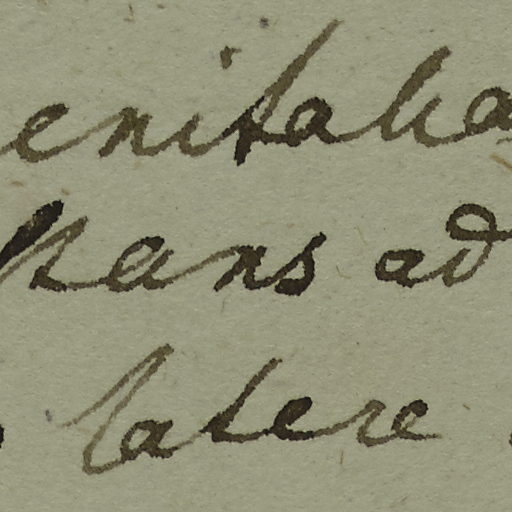 enitalia
pans ad
latere